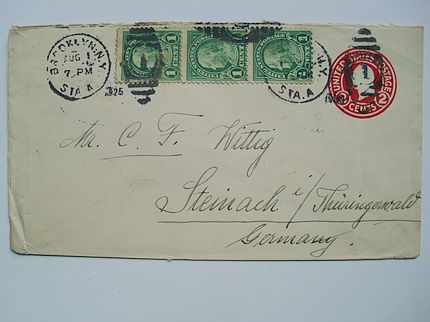 BROOKLYN, N.Y.
AUG 1
7 PM
1925
STA. A
1 1
1 1
1
N.Y.
STA. A
UNITED STATES POSTAGE
2 CENTS 2
Mr. C. F. Wittig
Steinach i/Thüringerwald
Germany.